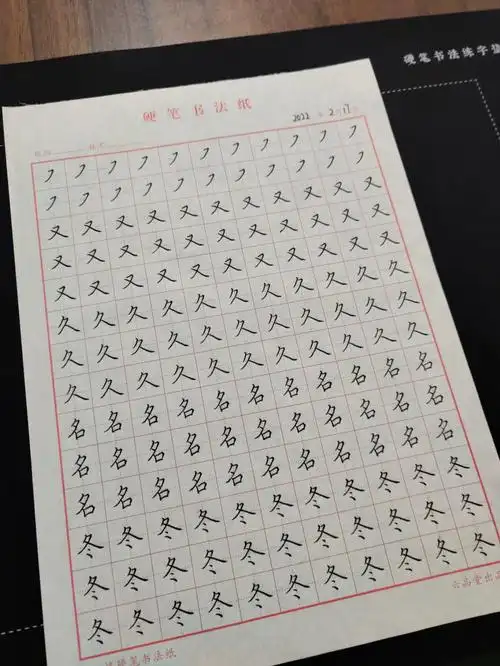 硬笔书法练字垫
硬笔书法纸
2022年2月17日
㇇㇇㇇㇇㇇㇇㇇㇇㇇㇇㇇
㇇㇇㇇㇇㇇㇇㇇㇇㇇㇇㇇
又又又又又又又又又又又
又又又又又又又又又又又
又又又又又又又又又又又
久久久久久久久久久久久
久久久久久久久久久久久
久久久久久久久久久久久
名名名名名名名名名名名
名名名名名名名名名名名
名名名名名名名名名名名
冬冬冬冬冬冬冬冬冬冬冬
冬冬冬冬冬冬冬冬冬冬冬
冬冬冬冬冬冬冬冬冬冬冬
硬笔书法纸
六品堂出品